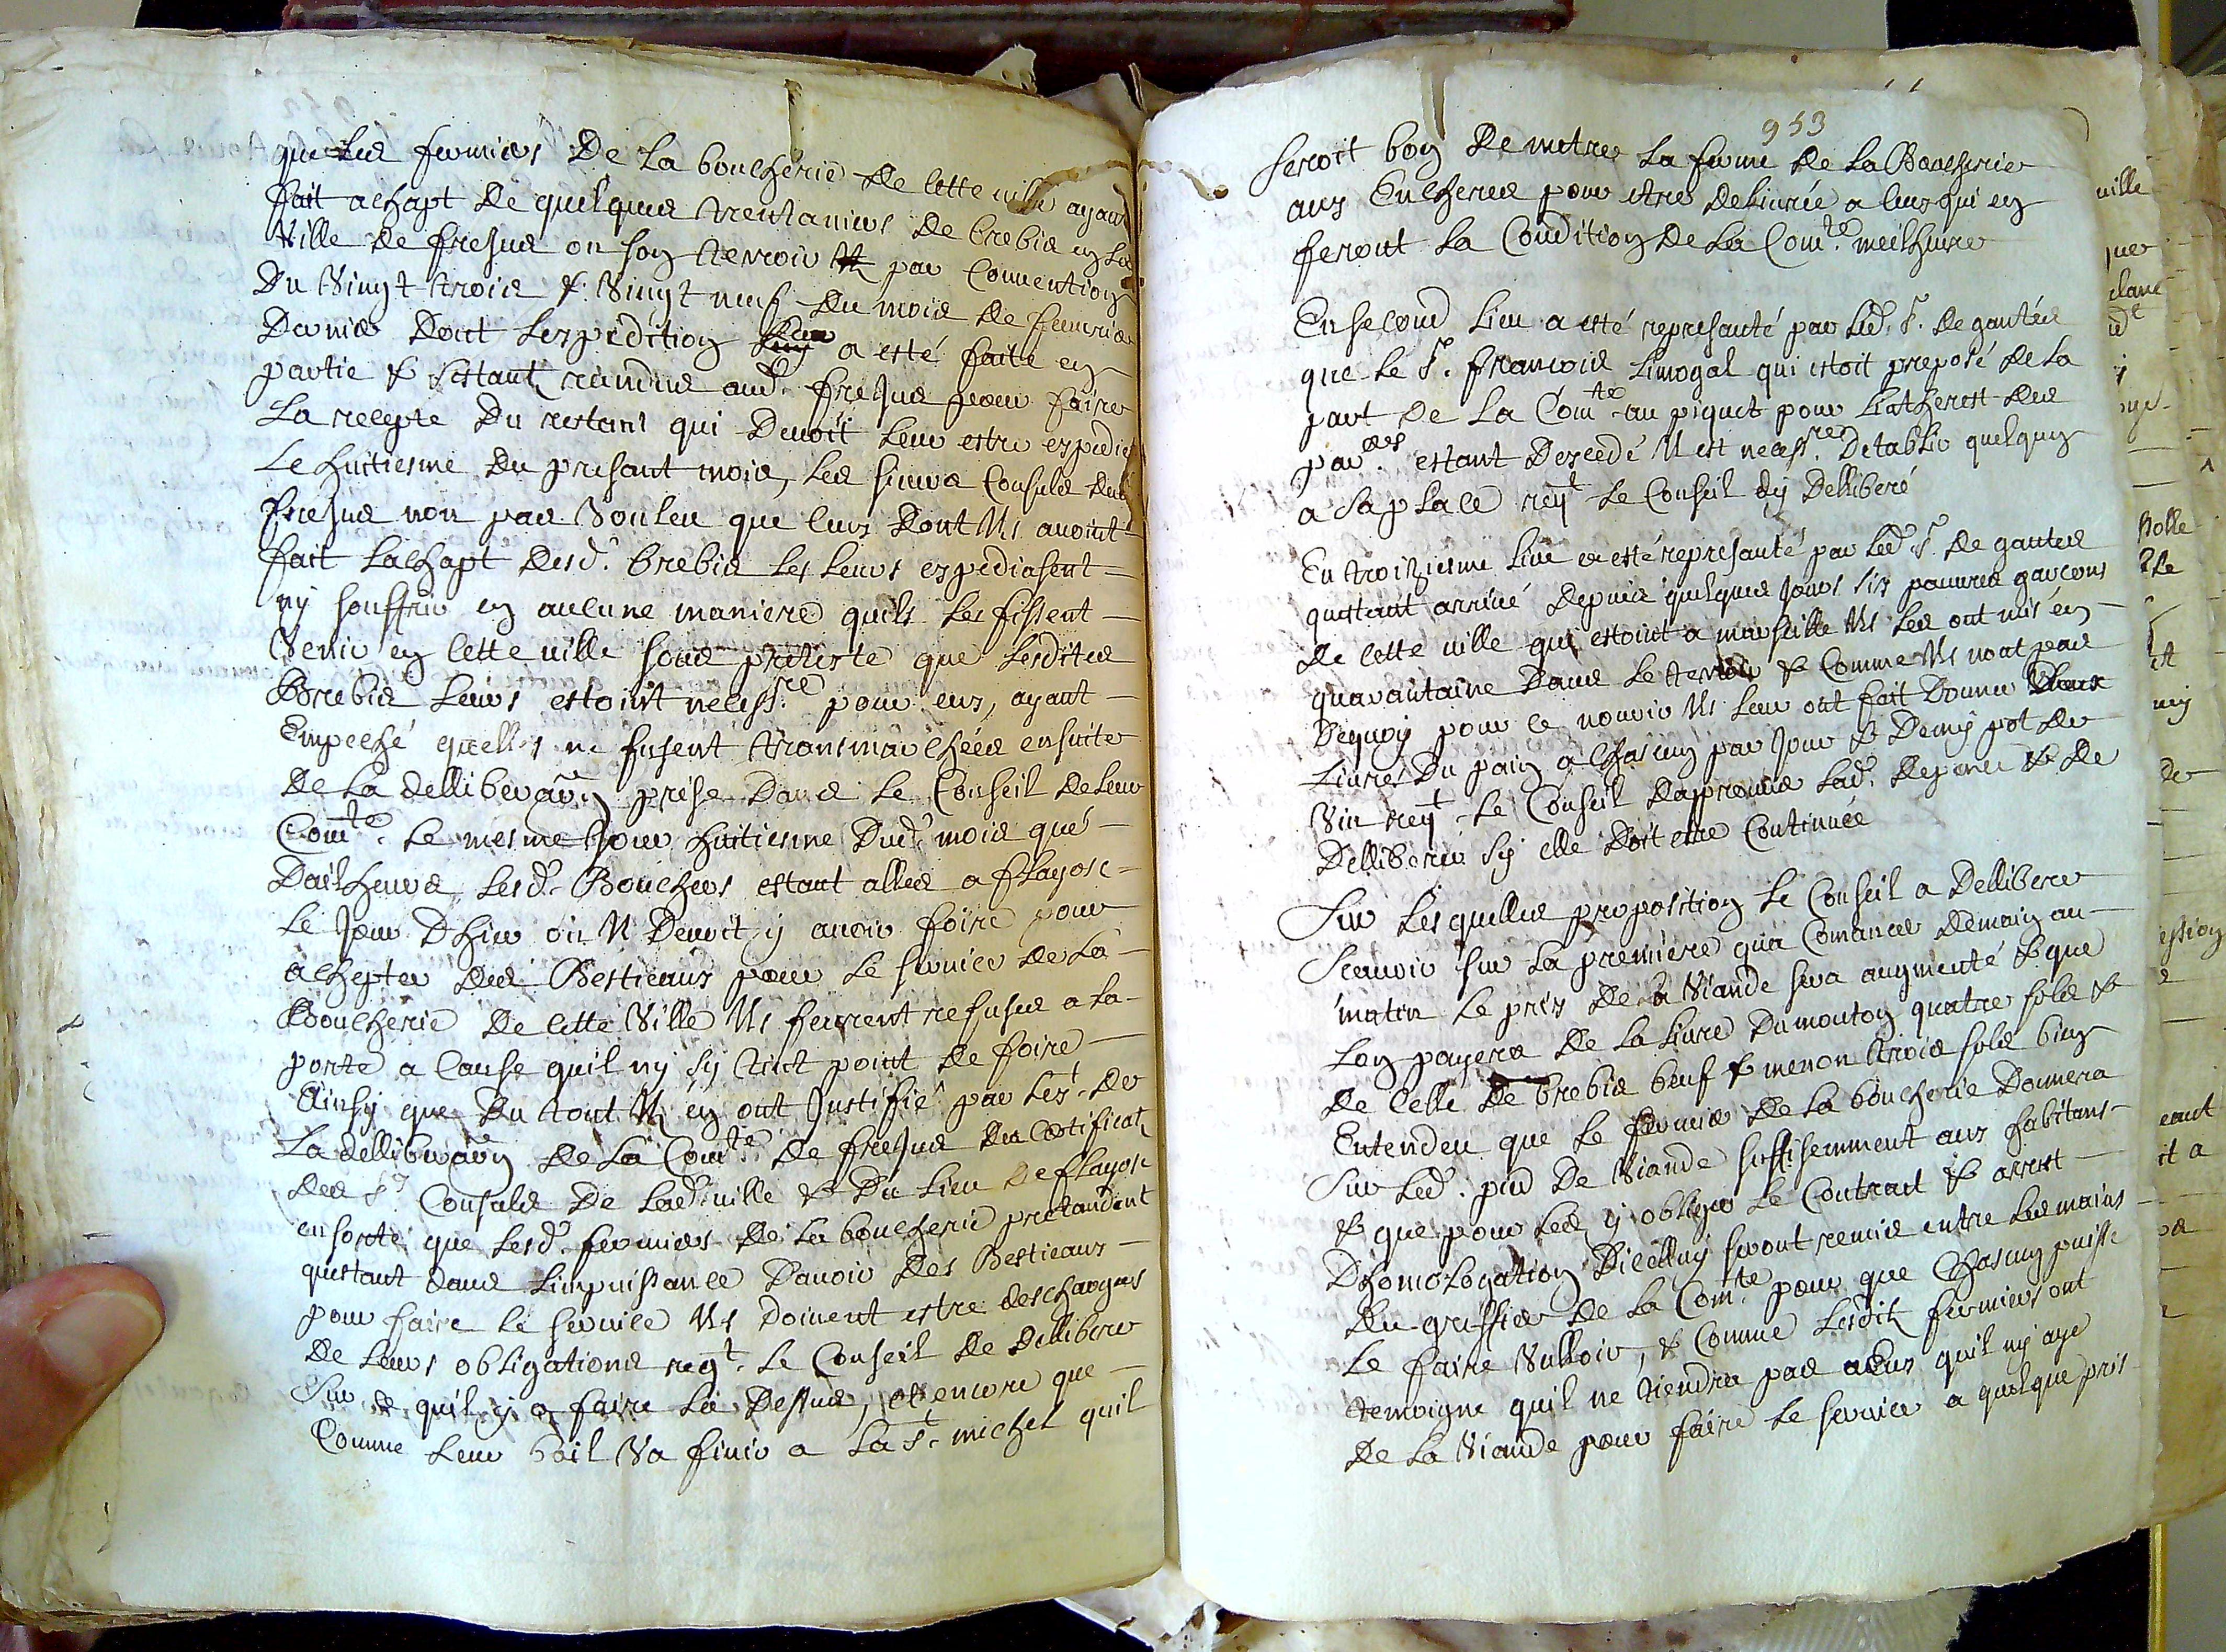 que les fermiers De La boucherie De cette ville ayant
fait achapt De quelques trentaniers De brebis en La
Ville De frejus ou son terroir par Convention
Du Vingt trois & Vingt neuf du mois de feuvrier
Dernier Dont Lexpedition Leur a esté faite en
partie & sestant randeus aud. frejus pour faire
La recepte Du restant qui Devoit Leur estre expedié
Le huitiesme Du presant mois, Les sieurs Consuls dud.
frejus non pas Vouleu que ceux Dont Ils avoint
fait Lachapt Desd. brebis Les Leurs expediasent
ny souffrir en aucune maniere quils Les fissent
Venir en cette ville sous pretexte que Lesdites
Brebis Leurs estoint necess.re pour eux, ayant
Empeché quelles ne fusent transmarchées ensuite
De La delliberaõn prise Dans Le Conseil De Leur
Com.te Le mesme Jour huitiesme Dud. mois que
Dailheurs Lesd. Bouchers estant alles a flayosc
Le Jour Dhier ou Il Devoit y avoir foire pour
achepter Des Bestieaux pour Le service De La
Boucherie De cette Ville Ils feurent refuses a La
porte a Cause quil ny sy tint point De foire
Ainsy que Du tout Ils en ont Justifié par Lex.t De
La delliberaõn De La Com.te De frejus Du Certificat
Des s.rs Consuls De Lad. ville & Du Lieu De flayosc
en sorte que Lesd. fermiers De La boucherie pretandent
questant dans Limpuissance Davoir Des Bestieaux
pour faire Le service Ils Doivent estre deschargés
De Leurs obligations reqt. Le Conseil De Delliberer
Sur ce quil y a faire La Dessus, et encore que
Comme Leur bail Va finir a La St. michel quil
953
seroit bon De metre La ferme De La Boucherie
aux Encheres pour etre Delivrée a ceux qui en
feront La Condition De La Com.te meilheure
En second Lieu a esté represanté par Led. Sr. De gantés
que Le Sr. francois Limogal qui estoit preposé De La
part De La Com.te au piquet pour Linterest des
par.ers estant Decedé Il est necess.re Detablir quelqun
a sa place reqt Le Conseil dy Delliberé
En troiziesme Lieu a esté represanté par Led. Sr. De gantes
questant arrivé Depuis quelques Jours six pauvres garcons
De cette ville qui estoint a marseille Ils Les ont mis en
quarantaine Dans Le terroir & Comme Ils nont pas
Dequoy pour ce nourir Ils Leur ont fait Donner Deux
Livres Du pain a Chascung par Jour & Demy pot De
Vin reqt Le Conseil Dapprouver Lad. Depence & De
Delliberer Sy elle Doit estre Continuée
Sur Lesquelles proposition Le Conseil a Delliberer
Scavoir sur La premiere qua Comancer Demain au
matin Le prix De La Viande sera augmenté & que
Lon payera De La Livre Du mouton quatre sols &
De Celle De brebis beuf & menon trois sols bien
Entendeu que Le fermier De La boucherie Donnera
Sur Led. pied De Viande suffisemment aux habitans
& que pour Les y obliger Le Contract & arrest
Dhomologation Dicelluy seront remis entre Les mains
Du greffier De La Com.te pour que Chascung puisse
Le faire Valloir, & Comme Lesdits fermiers ont
temoigne quil ne tiendra pas a Eux quil ny aye
De La Viande pour faire Le service a quelque prix